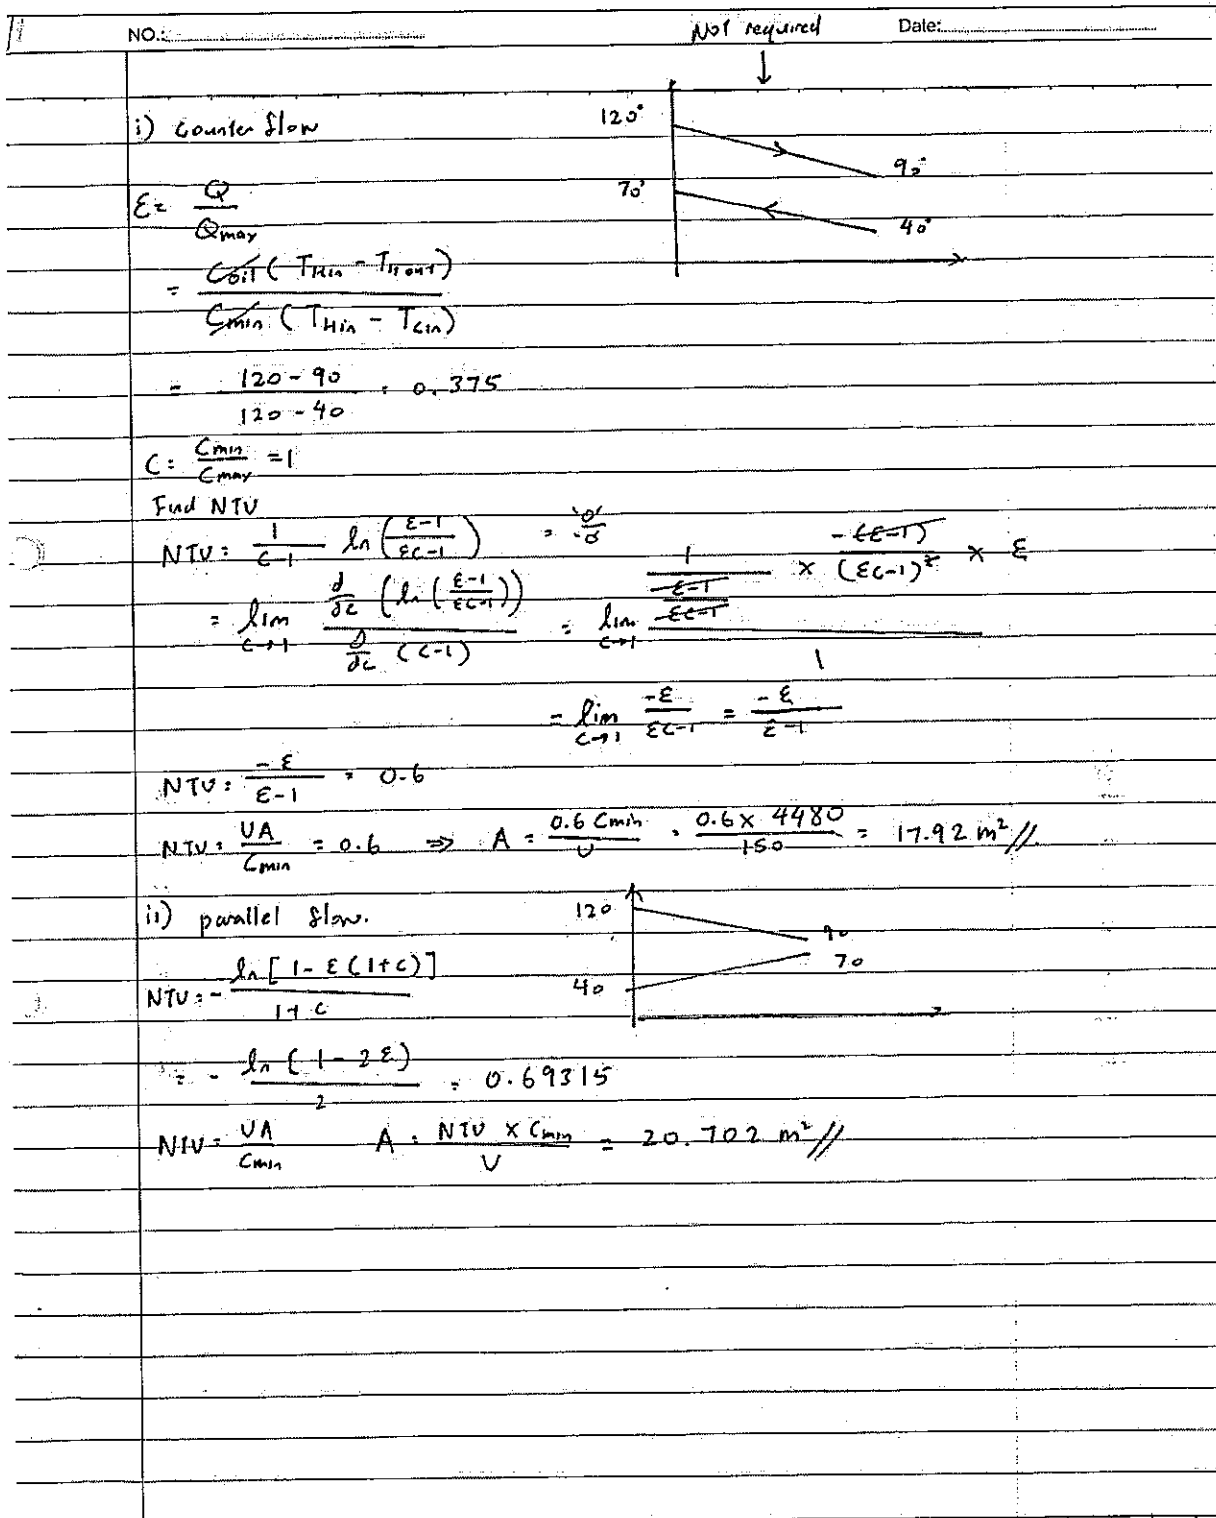 NO.: Not required Date:
↓
i) Counter flow
120°
90°
70°
40°
ε = Q / Qmax
= Coil ( THin - THout ) / Cmin ( THin - TCin )
= 120 - 90 / 120 - 40 = 0.375
C = Cmin / Cmax = 1
Find NTU
NTU = 1 / C-1 ln ( ε-1 / εC-1 ) = '0' / 0
= lim C→1 d/dc ( ln ( ε-1 / εC-1 ) ) / d/dc ( C-1 ) = lim C→1 1 / ( ε-1 / εC-1 ) × -(ε-1) / (εC-1)² × ε / 1
= lim C→1 -ε / εC-1 = -ε / ε-1
NTU = -ε / ε-1 = 0.6
NTU = UA / Cmin = 0.6 ⇒ A = 0.6 Cmin / U = 0.6 × 4480 / 150 = 17.92 m² //
ii) parallel flow.
120
90
70
40
NTU = - ln [ 1 - ε ( 1 + c ) ] / 1 + c
= - ln ( 1 - 2ε ) / 2 = 0.69315
NTU = UA / Cmin A = NTU × Cmin / U = 20.702 m² //